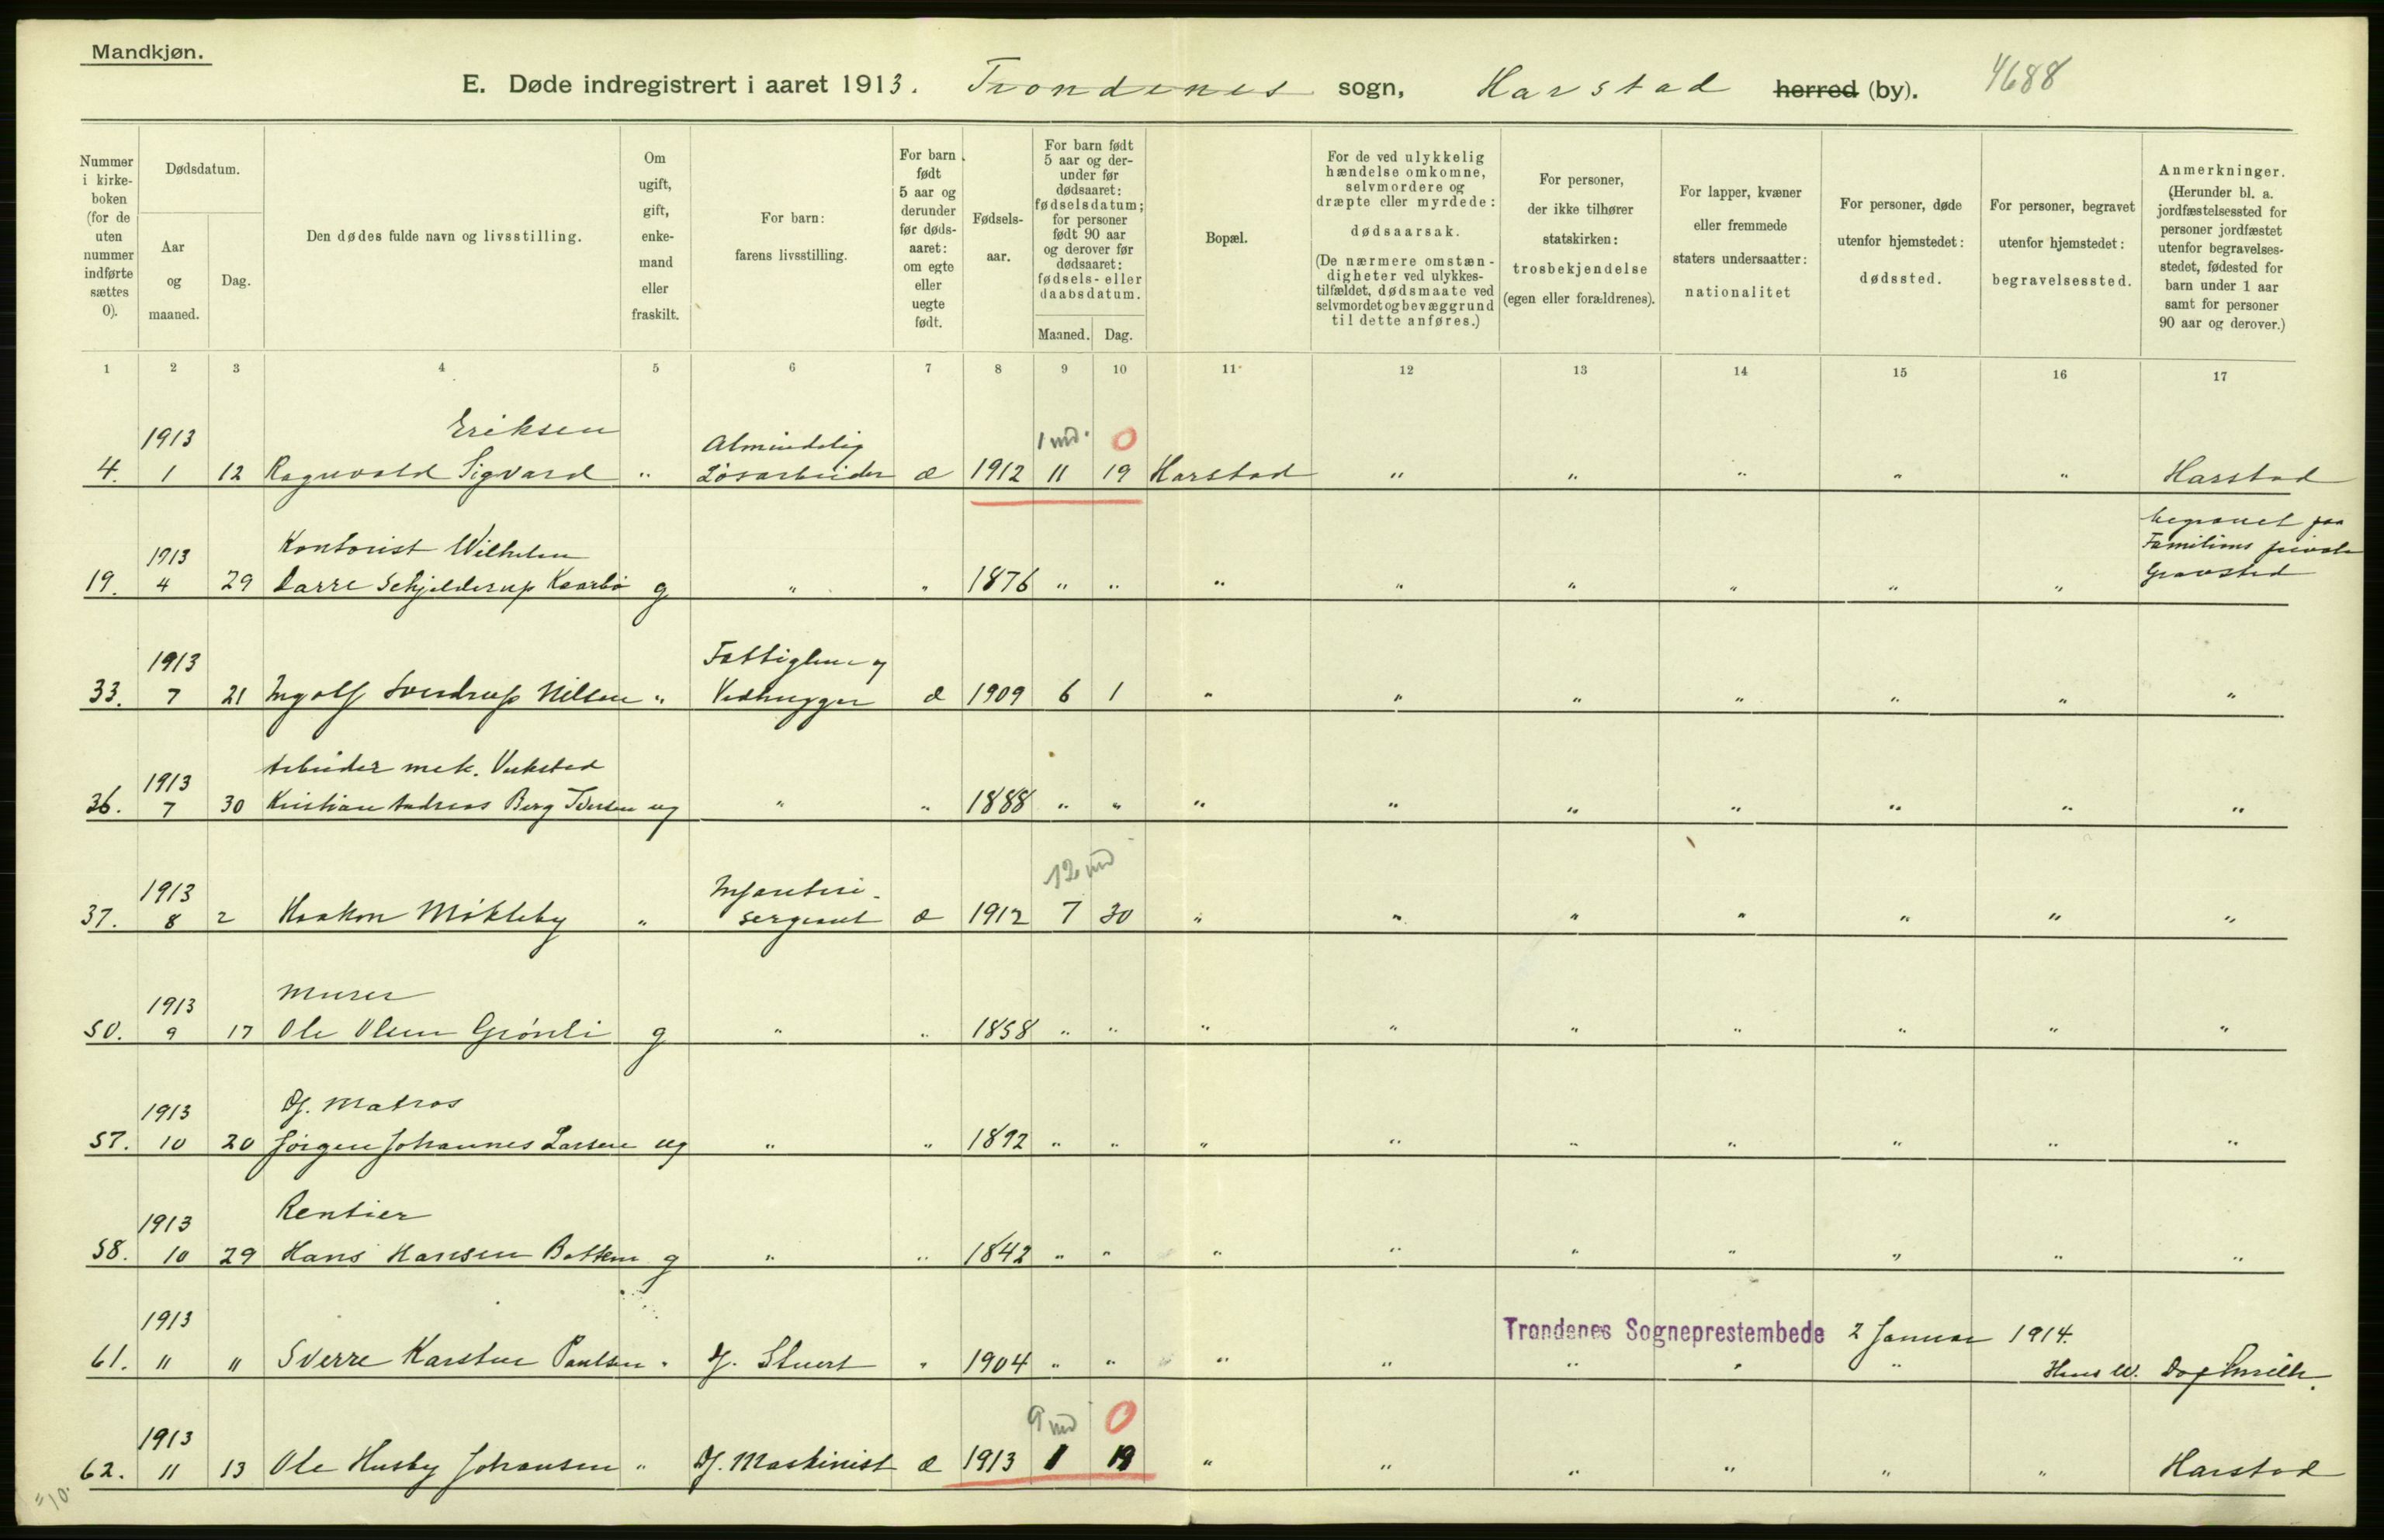 Mandkjøn.
E. Døde indregistrert i aaret 1913. Trondenes sogn, Harstad herred (by). 4688
Nummer i kirkeboken (for de uten nummer indførte sættes 0).
Dødsdatum.
Aar og maaned.
Dag.
Den dødes fulde navn og livsstilling.
Om ugift, gift, enkemand eller fraskilt.
For barn: farens livsstilling.
For barn født 5 aar og derunder før dødsaaret: om egte eller uegte født.
Fødselsaar.
For barn født 5 aar og derunder før dødsaaret: fødselsdatum; for personer født 90 aar og derover før dødsaaret: fødsels- eller daabsdatum.
Maaned. Dag.
Bopæl.
For de ved ulykkelig hændelse omkomne, selvmordere og dræpte eller myrdede: dødsaarsak. (De nærmere omstændigheter ved ulykkestilfældet, dødsmaate ved selvmordet og bevæggrund til dette anføres.)
For personer, der ikke tilhører statskirken: trosbekjendelse (egen eller forældrenes).
For lapper, kvæner eller fremmede staters undersaatter: nationalitet
For personer, døde utenfor hjemstedet: dødssted.
For personer, begravet utenfor hjemstedet: begravelsessted.
Anmerkninger. (Herunder bl. a. jordfæstelsessted for personer jordfæstet utenfor begravelsesstedet, fødested for barn under 1 aar samt for personer 90 aar og derover.)
1 2 3 4 5 6 7 8 9 10 11 12 13 14 15 16 17
1913 Eriksen Almindelig 1 md. 0
4. 1 12 Ragnvald Sigvard " Løsarbeider æ 1912 11 19 Harstad " " " " " Harstad
1913 Kontorist Wilhelm begravet paa Familiens private
19. 4 29 Darre Schjelderup Kaarbø g " " 1876 " " " " " " " " Gravsted
1913 Fattiglem og
33. 7 21 Ingolf Sverdrup Nilsen " Vedhugger æ 1909 6 1 " " " " " " "
1913 Arbeider mek. Verksted
36. 7 30 Kristian Andreas Berg Iversen ug " " 1888 " " " " " " " " "
1913 Infanteri- 12 md
37. 8 2 Haakon Møkleby " sergeant æ 1912 7 30 " " " " " " "
1913 Murer
50. 9 17 Ole Olsen Grønli g " " 1858 " " " " " " " " "
1913 Df. Matros
57. 10 20 Jørgen Johannes Larsen ug " " 1892 " " " " " " " " "
1913 Rentier
58. 10 29 Hans Hansen Batken g " " 1842 " " " " " " " " "
1913 Trondenes Sogneprestembede 2 Januar 1914.
61. 11 11 Sverre Karsten Paulsen " Df. Stuert " 1904 " " " " " " " Hans W.
1913 9 md 0
62. 11 13 Ole Husby Johansen " Df. Maskinist æ 1913 1 19 " " " " " " Harstad
" 10.